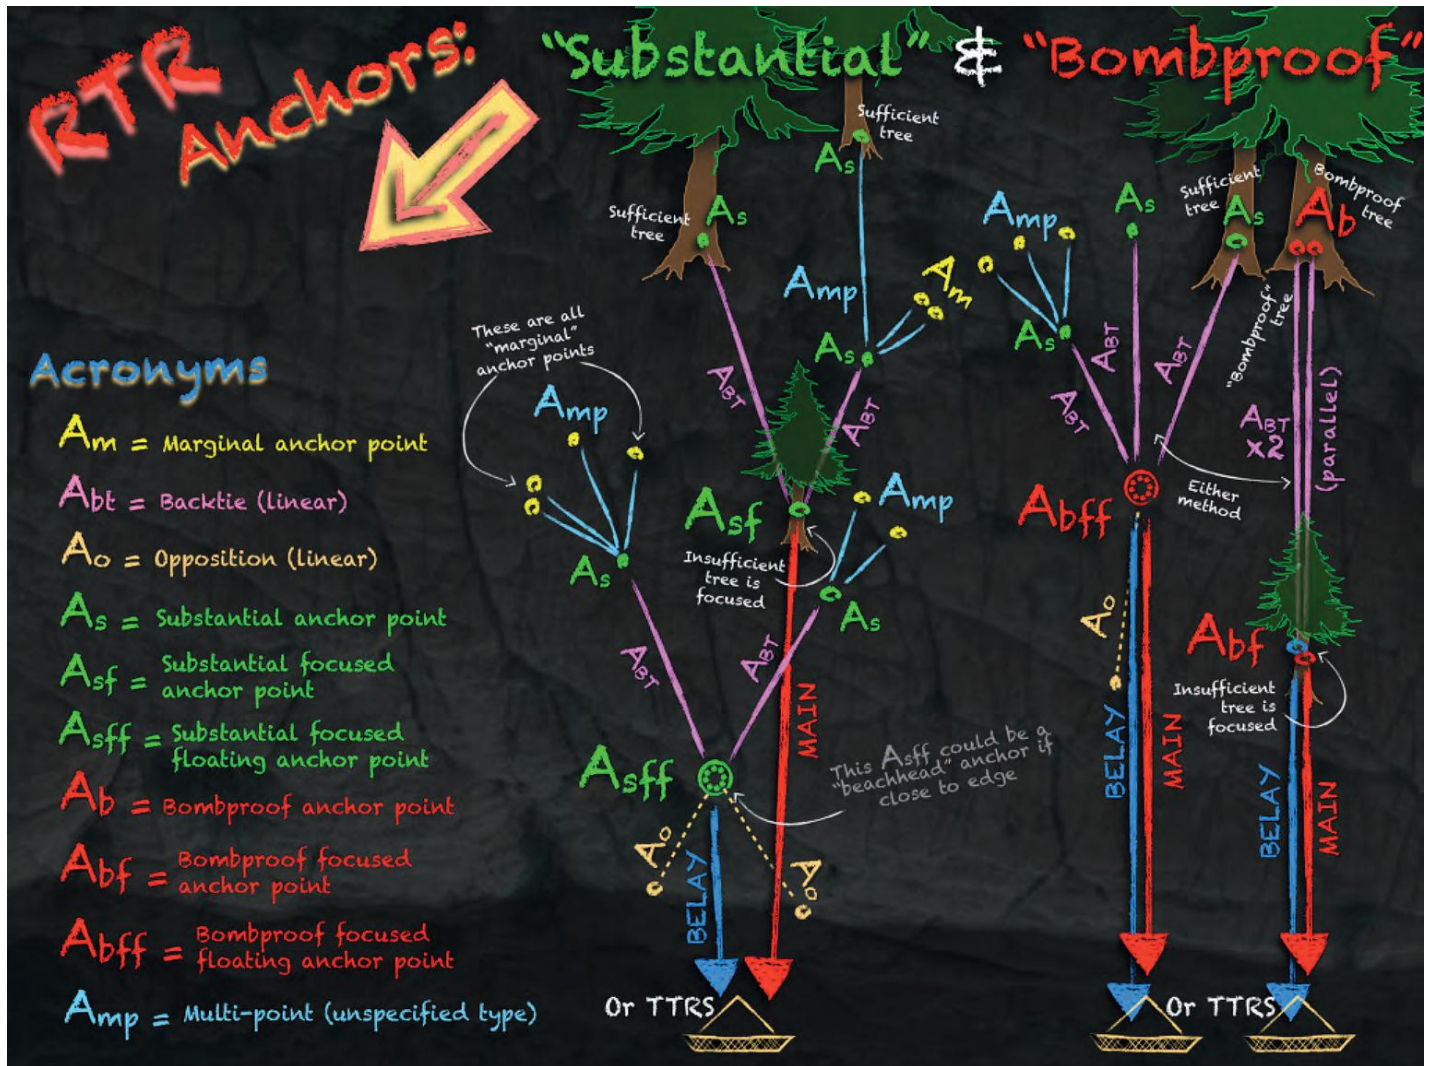 RTR
Anchors:
"Substantial" & "Bombproof"
Acronyms
Am = Marginal anchor point
Abt = Backtie (linear)
Ao = Opposition (linear)
As = Substantial anchor point
Asf = Substantial focused
anchor point
Asff = Substantial focused
floating anchor point
Ab = Bombproof anchor point
Abf = Bombproof focused
anchor point
Abff = Bombproof focused
floating anchor point
Amp = Multi-point (unspecified type)
Sufficient
tree
As
Sufficient
tree
As
Amp
Am
As
ABT
ABT
These are all
"marginal"
anchor points
Amp
As
Asf
Insufficient
tree is
focused
Amp
As
ABT
ABT
MAIN
Asff
This Asff could be a
"beachhead" anchor if
close to edge
Ao
Ao
BELAY
Or TTRS
Amp
As
As
Sufficient
tree
As
Bombproof
tree
Ab
ABT
ABT
ABT
"Bombproof"
tree
ABT
x2
(parallel)
Either
method
Abff
Ao
BELAY
MAIN
Abf
Insufficient
tree is
focused
BELAY
MAIN
Or TTRS